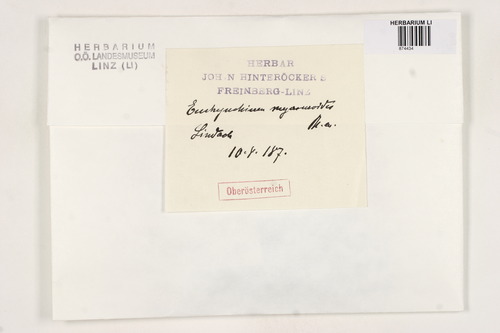 HERBARIUM
O.Ö. LANDESMUSEUM
LINZ (LI)
HERBARIUM LI
874434
HERBAR
JOH N HINTERÖCKER S
FREINBERG-LINZ
Eurhynchium
Lindach
10. 187.
Oberösterreich